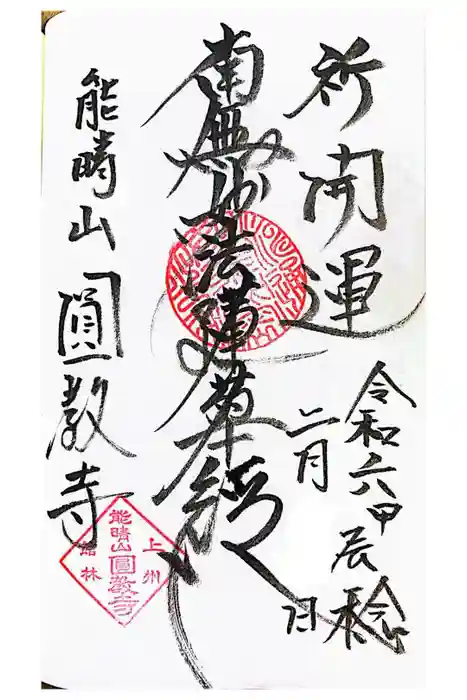 祈開運
令和六甲辰稔
二月 日
南無妙法蓮華経
能晴山 圓教寺
上州
能晴山圓教寺
館林